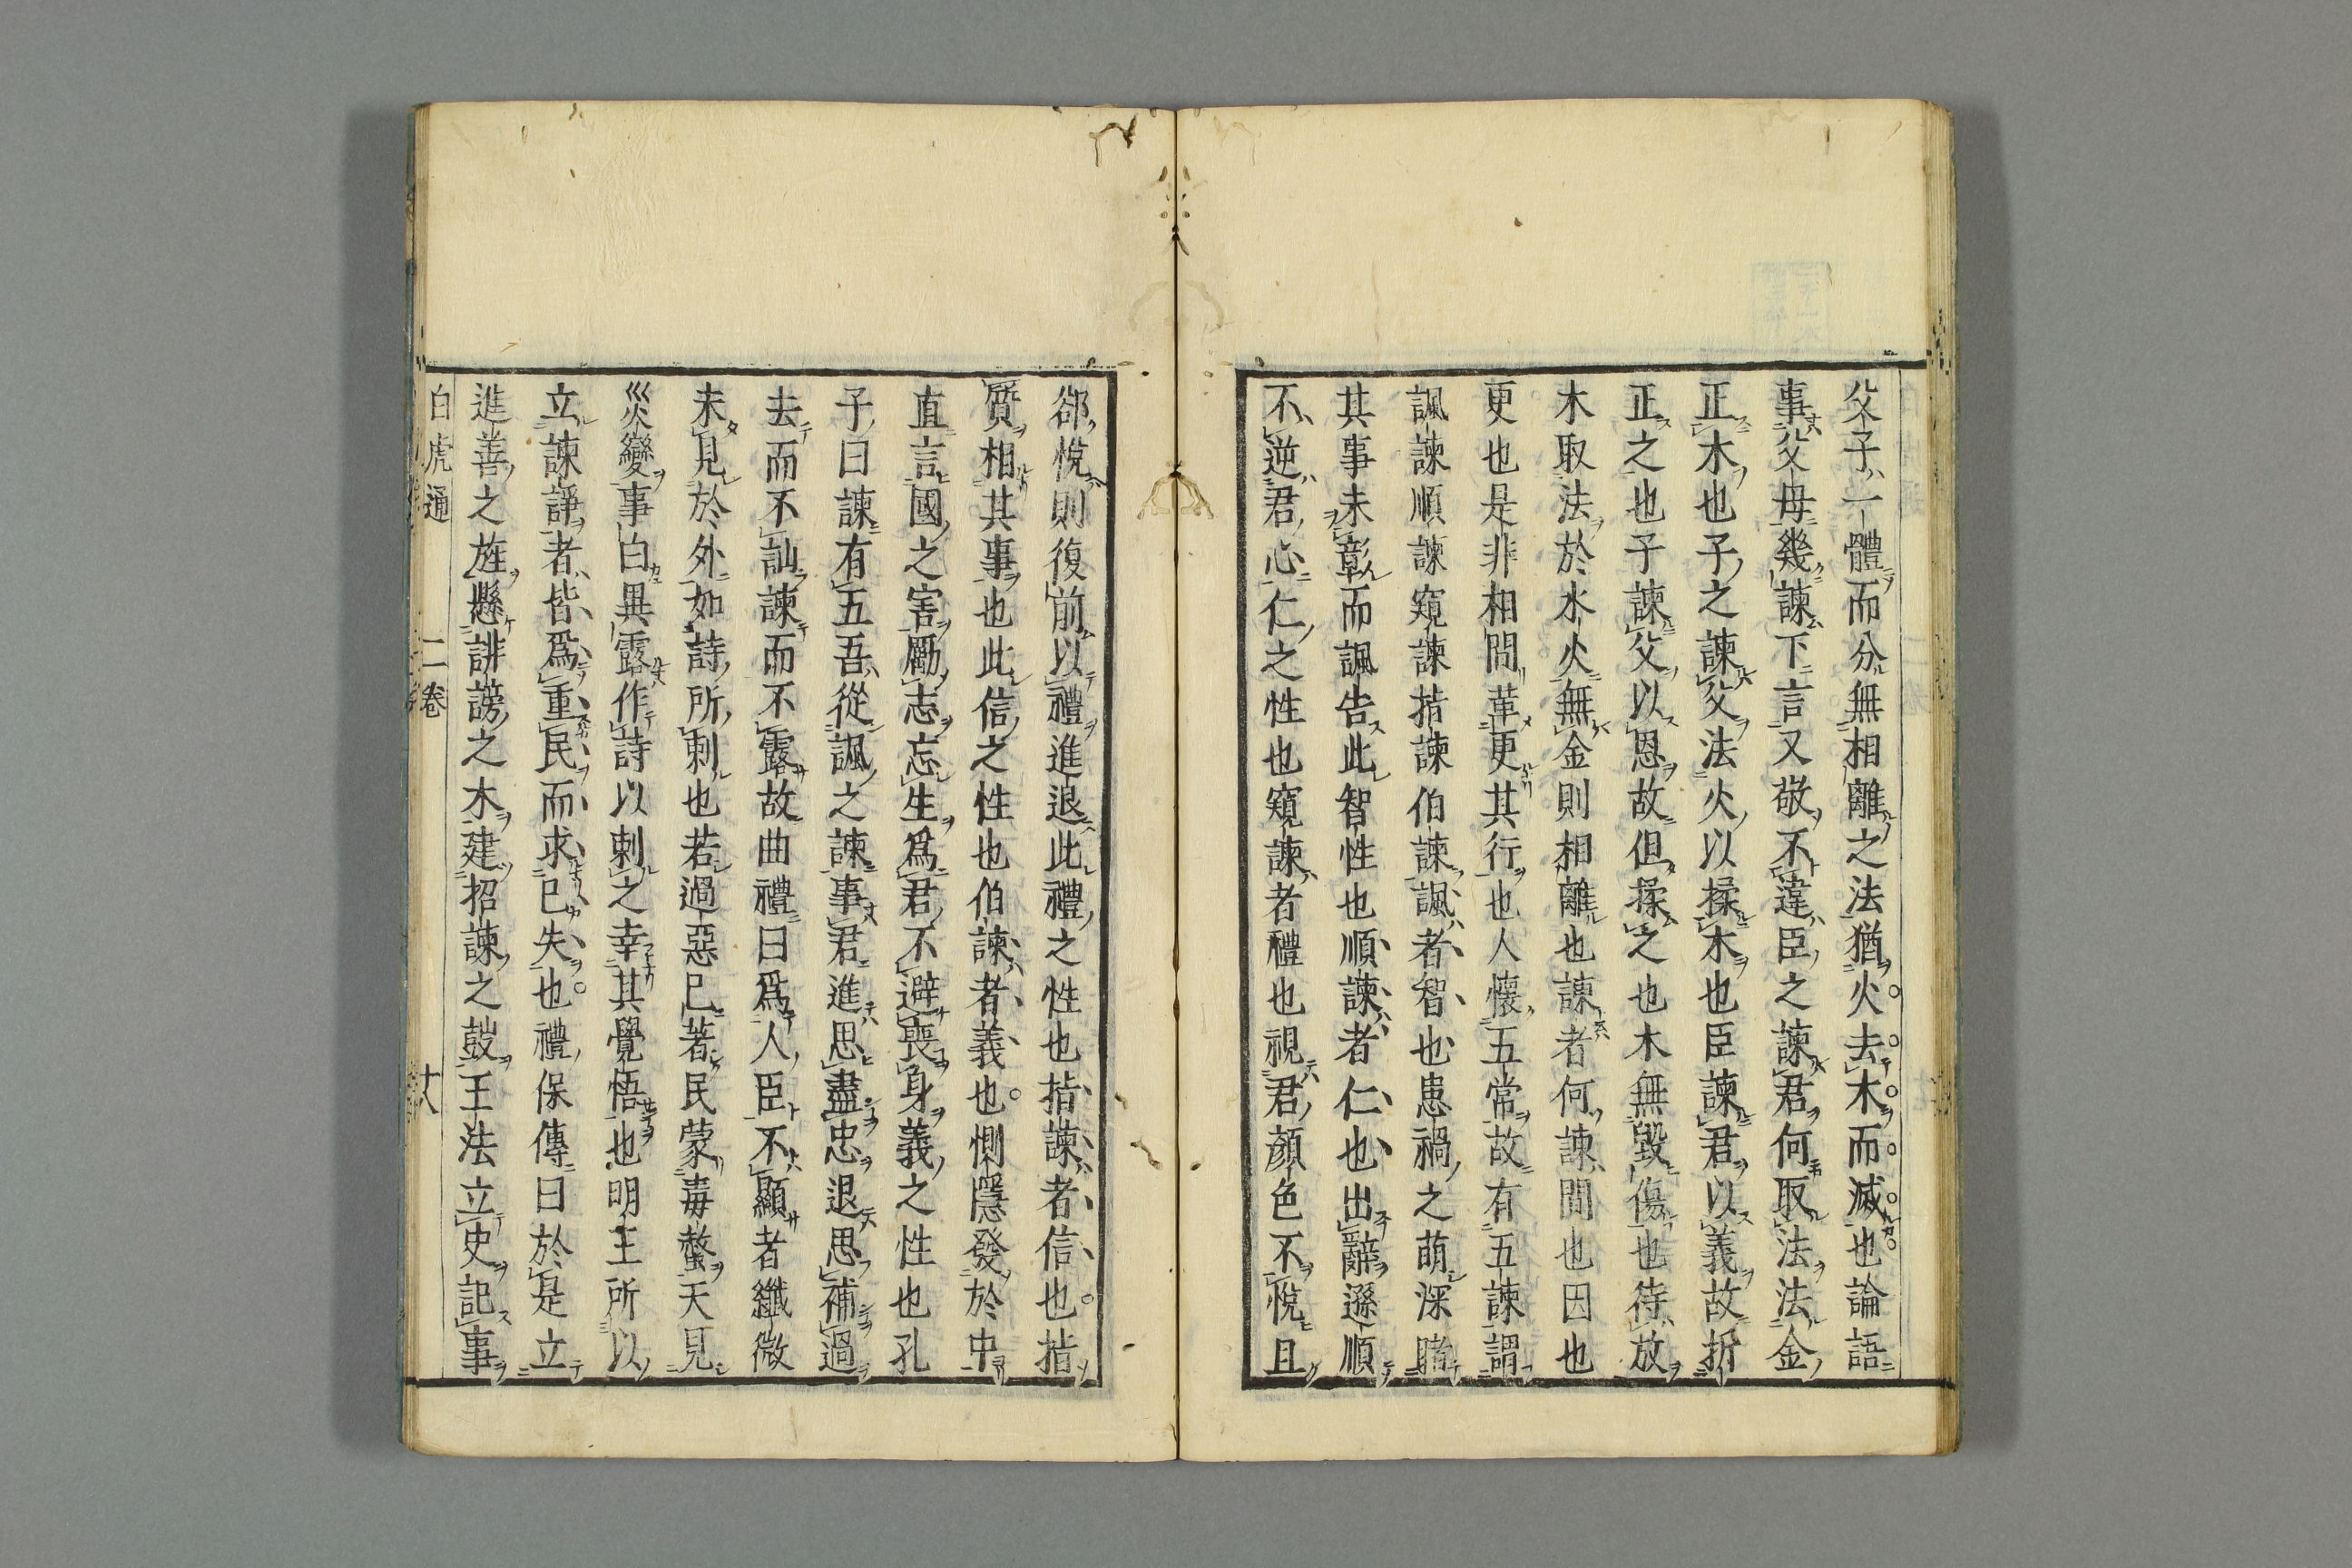 父子一體而分無相離之法猶火去木而滅也論語
事父母幾諫下言又敬不違臣之諫君何取法法金
正木也子之諫父法火以揉木也臣諫君以義故折
正之也子諫父以恩故但揉之也木無毀傷也待放
木取法於水火無金則相離也諫者何諫間也因也
更也是非相間革更其行也人懷五常故有五諫謂
諷諫順諫窺諫指諫伯諫諷者智也患禍之萌深睹
其事未彰而諷告此智性也順諫者仁也出辭遜順
不逆君心仁之性也窺諫者禮也視君顏色不悅且
郤悅則復前以禮進退此禮之性也指諫者信也指
質相其事也此信之性也伯諫者義也惻隱發於中
直言國之害勵志忘生爲君不避喪身義之性也孔
子曰諫有五吾從諷之諫事君進思盡忠退思補過
去而不訕諫而不露故曲禮曰爲人臣不顯者纖微
未見於外如詩所刺也若過惡已著民蒙毒螫天見
災變事白異露作詩以刺之幸其覺悟也明王所以
立諫諍者皆爲重民而求已失也禮保傳曰於是立
進善之旌懸誹謗之木建招諫之鼓王法立史記事
白虎通 二卷 十八